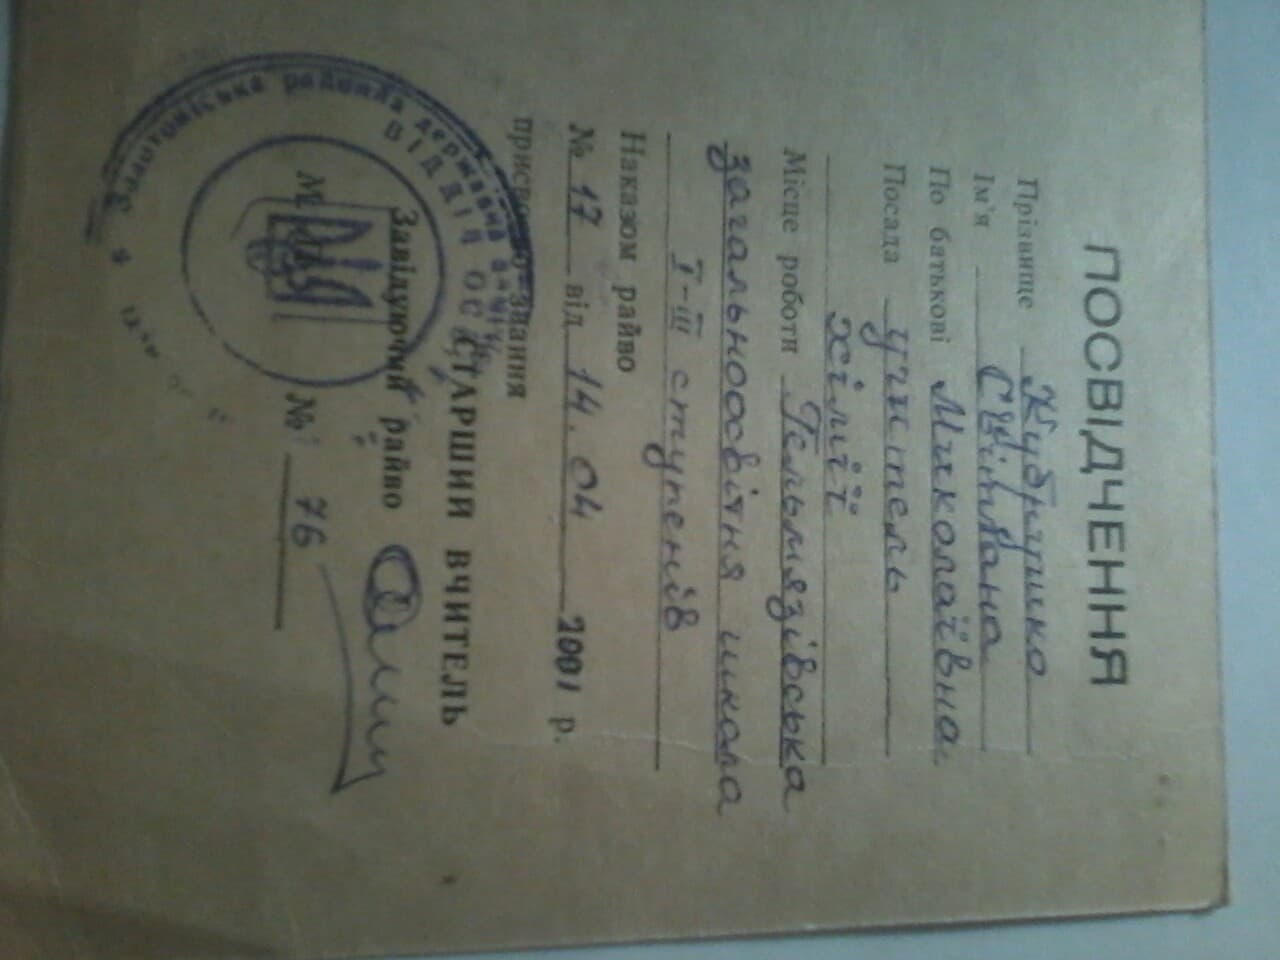 ПОСВІДЧЕННЯ
Прізвище Кубрушко
Ім'я Світлана
По батькові Миколаївна
Посада учитель
хімії
Місце роботи Гельмязівська
загальноосвітня школа
І-ІІІ ступенів
Наказом райво
№ 17 від 14.04 2001 р.
присвоєно звання
СТАРШИЙ ВЧИТЕЛЬ
Завідуючий райво
М. П. № 76
Золотоніська районна державна
ВІДДІЛ ОСВІТИ